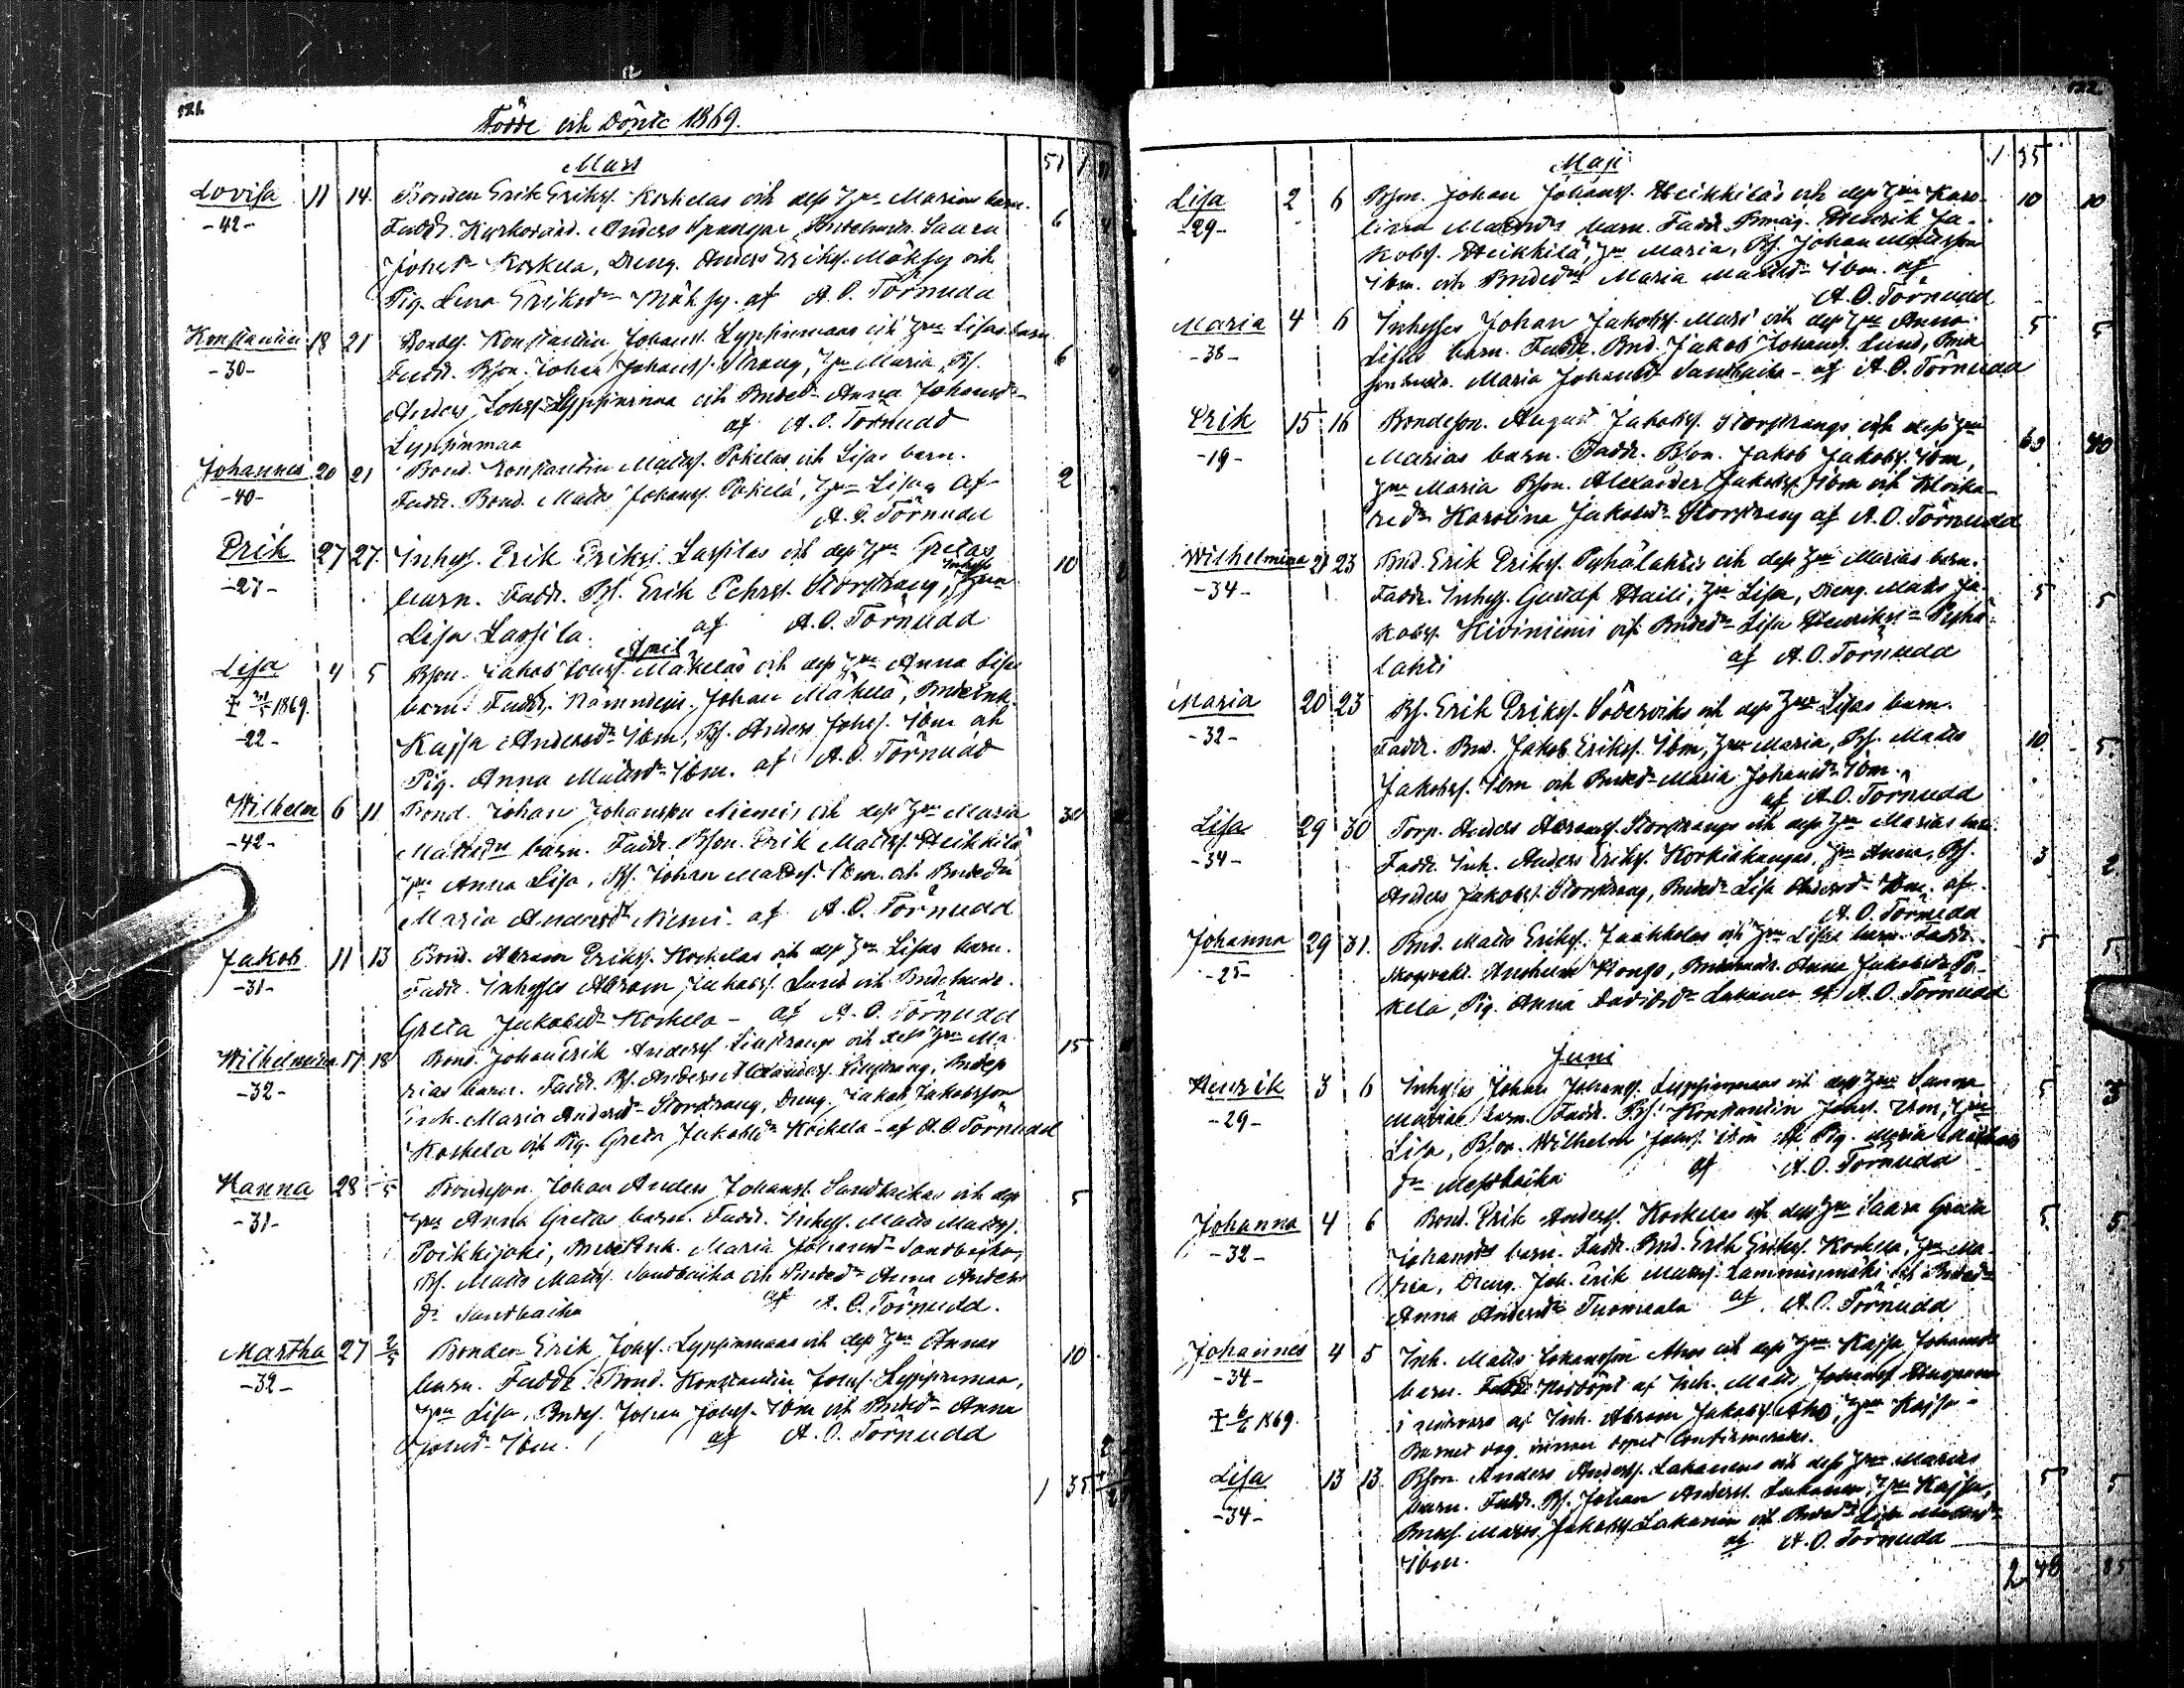 121.
Födde och Döpte 1869.
Mars
51 1
Lovisa 11 14. Bonden Erik Eriks. Koskelas och dess Hru Marias barn. 6
-42- Faddr. Kyrkovärd. Anders Spangar, Bndehustr. Saara
Johsdr Koskela, Dreng. Anders Eriks. Mäksy och
Pig. Lena Eriksdr Mäksy. af A. O. Törnudd
Konstantin 18 21 Bondes. Konstantin Johans. Lyppinmaas och Hru Lisas barn. 6
-30- Faddr. Bson. Johan Johanss. Strang, Hru Maria, Bs.
Anders Johss. Lyppinmaa och Bndedr Anna Johansdr
Lyppinmaa af A. O. Törnudd
Johannes 20 21 Bond. Konstantin Matts. Pokelas och Lisas barn. 2
-40- Faddr. Bond. Matts Johans. Pokela, Hru Lisa. af
A. O. Törnudd
Erik 27 27. Inhys. Erik Eriks. Lassilas och dess Hru Gretas 10
-27- barn. Faddr. Bs. Erik Pehrs. Storstrang, Inhyses Hru
Lisa Lassila. af A. O. Törnudd
April
Lisa 4 5 Bson. Jakob Johs. Mäkeläs och dess Hru Anna Lisas
1869. barn. Faddr. Nämndem. Johan Mäkelä, Bndeenk.
-22- Kajsa Andersdr Ibm, Bs. Anders Johs. Ibm och
Pig. Anna Mattsdr Ibm. af A. O. Törnudd
Wilhelm 6 11 Bond. Johan Johansson Niemis och dess Hru Maria 30
-42- Mattsdrs barn. Faddr. Bson. Erik Matts. Heikkilä
Hru Anna Lisa, Bs. Johan Matts. Ibm. och Bndedr
Maria Andersdr Niemi. af A. O. Törnudd
Jakob 11 13 Bond. Abram Eriks. Koskelas och dess Hru Lisas barn.
-31- Faddr. Inhyses Abram Jakobs. Lund och Bndehustr.
Greta Jakobsdr Koskela - af A. O. Törnudd
Wilhelmina 17 18 Bond. Johan Erik Anders. Linstrangs och dess Hru Ma- 15
-32- rias barn. Faddr. Bs. Anders Alexanders. Linstrang, Bndes
Enk. Maria Andersdr Storstrang, Dreng. Jakob Jakobsson
Koskela och Pig. Greta Jakobsdr Koskela - af A. O. Törnudd
Hanna 28 5 Bondeson. Johan Anders Johans. Sandbackas och dess 5
-31- Hru Anna Gretas barn. Faddr. Inhys. Matts Matts.
Poikkijoki, Bndeenk. Maria Johansdr Sandbacka,
Bs. Matts Matts. Sandbacka och Bndedr Anna Anders
dr Sandbacka af A. O. Törnudd.
Martha 27 2/5 Bonden Erik Johs. Lyppinmaas och dess Hru Annas 10
-32- barn. Faddr. Bond. Konstantin Johs. Lyppinmaa,
Hru Lisa, Bndes. Johan Johs. Ibm och Bndedr Anna
Johsdr Ibm. af A. O. Törnudd
1 35
122
Maji
1 35
Lisa 2 6 Bson. Johan Johans. Heikkiläs och dess Hru Karo- 10 10
-29- lina Mattsdrs barn. Faddr. Bmåg. Henrik Ja-
kobs. Heikkilä, Hru Maria, Bs. Johan Mattsson
Ibm. och Bndedr Maria Mattsdr Ibm. af
A. O. Törnudd
Maria 4 6 Inhyses Johan Jakobs. Mars och dess Hru Anna 5 5
-38- Lisas barn. Faddr. Bnd. Jakob Johans. Lund, Bnde
sonhustr. Maria Johansdr Sandbacka - af A. O. Törnudd
Erik 15 16 Bondeson. August Jakobs. Storstrangs och dess Hru 40
-19- Marias barn. Faddr. Bson. Jakob Jakobs. Ibm,
Hru Maria Bson. Alexander Jakobs. Ibm och Klocka-
redr Karolina Jakobsdr Storstrang af A. O. Törnudd
Wilhelmina 21 23 Bnd. Erik Eriks. Pyhälahtis och dess Hru Marias barn. 5 5
-34- Faddr. Inhys. Gustaf Haili, Hru Lisa, Dreng. Matts Ja-
kobs. Kiviniemi och Bndedr Lisa Henriksdr Pyhä-
lahti af A. O. Törnudd
Maria 20 23 Bs. Erik Eriks. Söderviks och dess Hru Lisas barn. 10 5
-32- Faddr. Bnd. Jakob Eriks. Ibm, Hru Maria, Bs. Matts
Jakobs. Ibm och Bndedr Maria Johansdr Ibm.
af A. O. Törnudd
Lisa 29 30 Torp. Anders Abrams. Storstrangs och dess Hru Marias barn. 3 2
-34- Faddr. Inh. Anders Eriks. Korkiakangas, Hru Anna, Bs.
Anders Jakobs. Storstrang, Bndedr Lisa Andersdr Ibm. af
A. O. Törnudd
Johanna 29 31. Bnd. Matts Eriks. Jaakkolas och Hru Lisas barn. Faddr. 5 5
-25- Skogvakt. Anshelm Kongo, Bndehustr. Anna Jakobsdr Po-
kela, Pig. Anna Davidsdr Lakanen af A. O. Törnudd
Juni
Henrik 3 6 Inhyses Johan Johans. Lyppinmaas och dess Hru Sanna 5 3
-29- Marias barn. Faddr. Bs. Konstantin Johs. Ibm, Hru
Lisa, Bson. Wilhelm Johs. Ibm och Pig. Maria Matts
dr Mestbacka af A. O. Törnudd
Johanna 4 6 Bond. Erik Anders. Koskelas och dess Hru Saara Greta 5 5
-32- Johansdrs barn. Faddr. Bnd. Erik Eriks. Koskela, Hru Ma-
ria, Dreng. Joh. Erik Matts. Lamminmäki och Bndedr
Anna Andersdr Tuomaala af A. O. Törnudd
Johannes 4 5 Inh. Matts Johansson Ahos och dess Hru Kajsa Johansdrs
-34- barn. Faddr. Nöddöpt af Inh. Matts Johans.
1869. i närvaro af Inh. Abram Jakobs. Aho, Hru Kajsa -
Barnet dog innan dopet Confirmerades.
Lisa 13 13 Bson. Anders Anders. Lakanens och dess Hru Marias 5 5
-34- barn. Faddr. Bs. Johan Anders. Lakanen, Hru Kajsa,
Bndes. Matts Jakobs. Lakanen och Bndedr Lisa Mattsdr
Ibm. af A. O. Törnudd
2 48 85